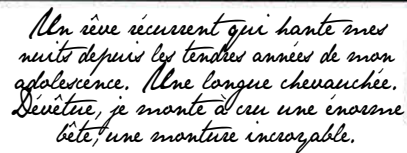 Un rêve récurrent qui hante mes
nuits depuis les tendres années de mon
adolescence. Une longue chevauchée.
Dévêtue, je monte à cru une énorme
bête, une monture incroyable.